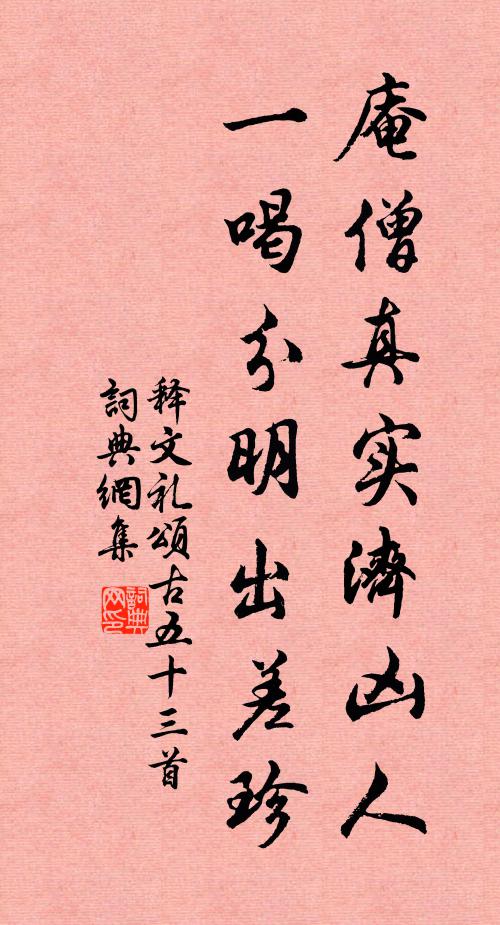 庵僧真实濟凶人
一喝分明出差珍
释文礼頌古五十三首
詞典網集
詞典网印